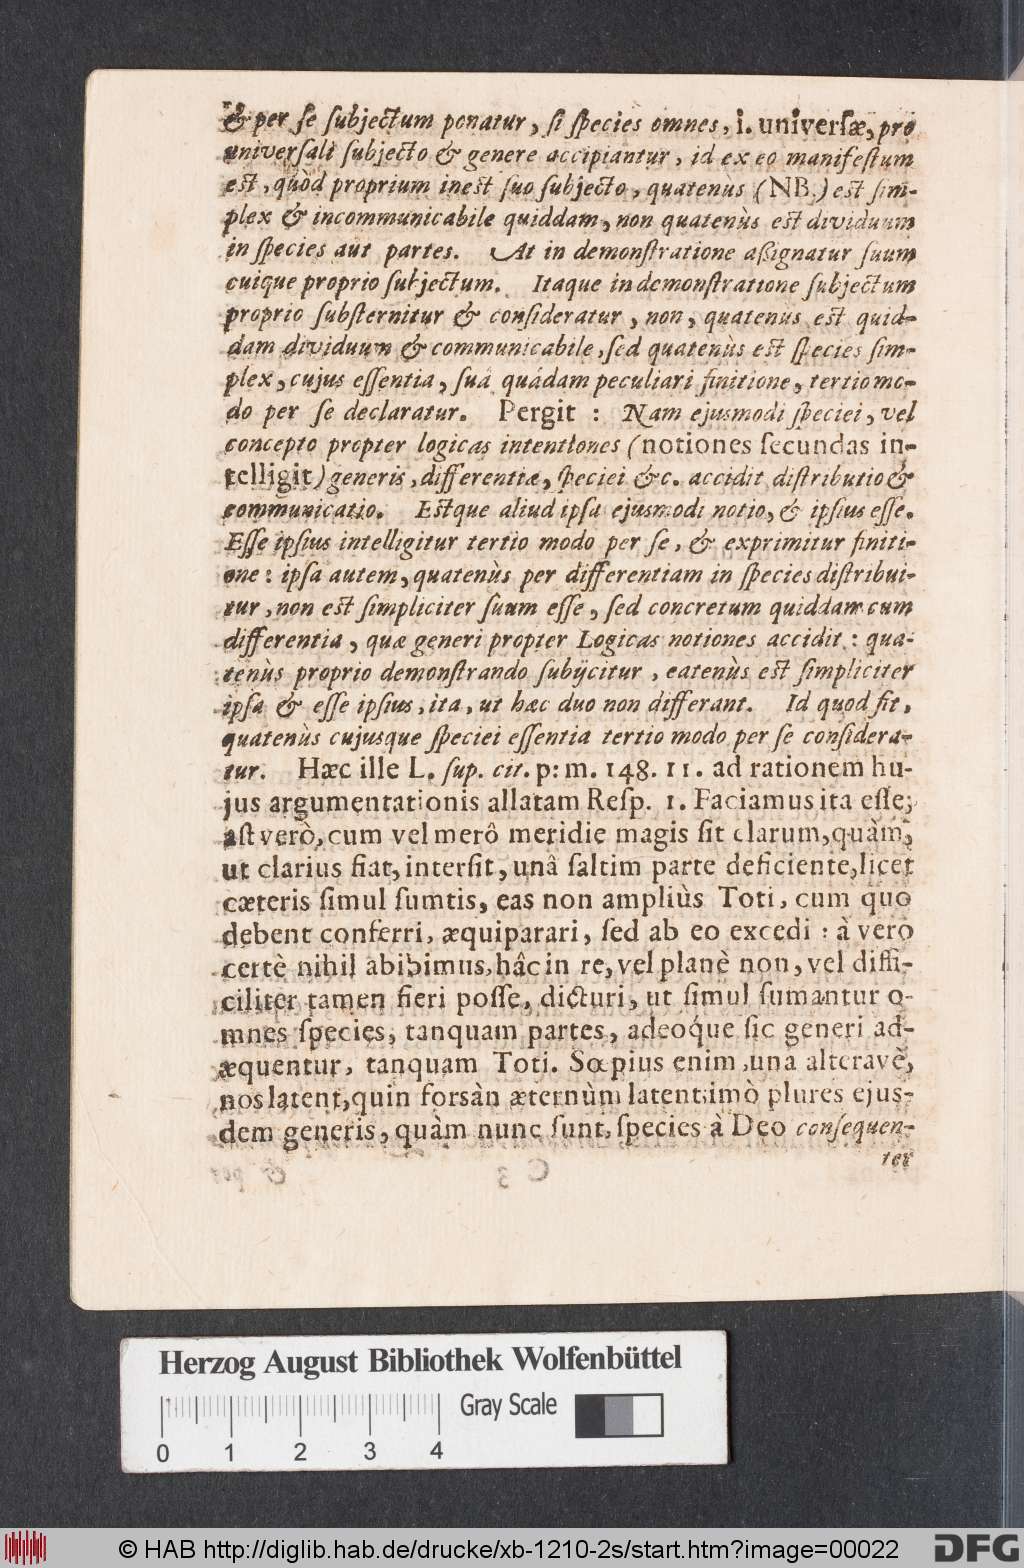 & per ſe ſubjectum ponatur, ſi ſpecies omnes, i. univerſæ, pro
univerſali ſubjecto & genere accipiantur, id ex eo manifeſtum
eſt, quòd proprium ineſt ſuo ſubjecto, quatenùs (NB.) eſt ſim-
plex & incommunicabile quiddam, non quatenùs eſt dividuum
in ſpecies aut partes. At in demonſtratione aßignatur ſuum
cuique proprio ſubjectum. Itaque in demonſtratione ſubjectum
proprio ſubſternitur & conſideratur, non, quatenus eſt quid-
dam dividuum & communicabile, ſed quatenùs eſt ſpecies ſim-
plex, cujus eſſentia, ſuâ quâdam peculiari finitione, tertio mo-
do per ſe declaratur. Pergit : Nam ejusmodi ſpeciei, vel
concepto propter logicas intentiones (notiones ſecundas in-
telligit) generis, differentiæ, ſpeciei &c. accidit diſtributio &
communicatio. Eſtque aliud ipſa ejusmodi notio, & ipſius eſſe.
Eſſe ipſius intelligitur tertio modo per ſe, & exprimitur finiti-
one: ipſa autem, quatenùs per differentiam in ſpecies diſtribui-
tur, non eſt ſimpliciter ſuum eſſe, ſed concretum quiddam cum
differentia, quæ generi propter Logicas notiones accidit: qua-
tenùs proprio demonſtrando ſubijcitur, eatenùs eſt ſimpliciter
ipſa & eſſe ipſius, ita, ut hæc duo non differant. Id quod fit,
quatenùs cujusque ſpeciei eſſentia tertio modo per ſe conſidera-
tur. Hæc ille L. ſup. cit. p: m. 148. 11. ad rationem hu-
jus argumentationis allatam Reſp. 1. Faciamus ita eſſe;
aſt verò, cum vel merô meridie magis ſit clarum, quàm,
ut clarius fiat, interſit, unâ ſaltim parte deficiente, licet
cæteris ſimul ſumtis, eas non ampliùs Toti, cum quo
debent conferri, æquiparari, ſed ab eo excedi : à vero
certè nihil abibimus, hâc in re, vel planè non, vel diffi-
ciliter tamen fieri poſſe, dicturi, ut ſimul ſumantur o-
mnes ſpecies, tanquam partes, adeoq́ue ſic generi ad-
æquentur, tanquam Toti. Sœpius enim, una alteravè,
nos latent, quin forsàn æternùm latent: imò plures ejus-
dem generis, quàm nunc ſunt, ſpecies à Deo conſequen-
ter
Herzog August Bibliothek Wolfenbüttel
Gray Scale
0 1 2 3 4
© HAB http://diglib.hab.de/drucke/xb-1210-2s/start.htm?image=00022
DFG